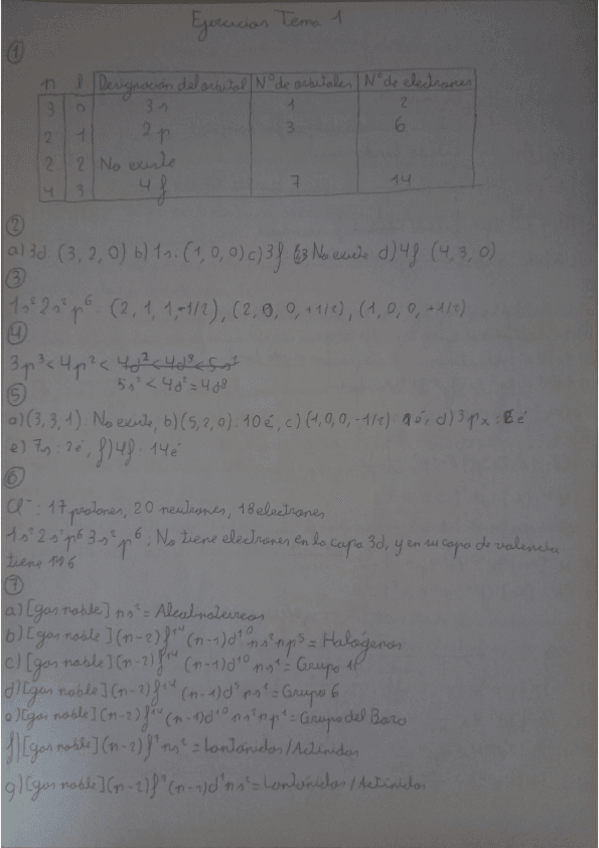 Ejercicios Tema 1
①
n l Designación del orbital Nº de orbitales Nº de electrones
3 0 3s 1 2
2 1 2p 3 6
2 2 No existe
4 3 4f 7 14
②
a) 3d: (3, 2, 0) b) 1s: (1, 0, 0) c) 3f: No existe d) 4f (4, 3, 0)
③
1s² 2s² p⁶: (2, 1, 1, -1/2), (2, 0, 0, +1/2), (1, 0, 0, +1/2)
④
3p³ < 4p² < 4d² < 4d⁸ < 5s²
5s² < 4d² = 4d⁸
⑤
a) (3, 3, 1): No existe, b) (5, 2, 0): 10 é, c) (1, 0, 0, -1/2): 1é, d) 3px: é
e) 7s: 2é, f) 4f: 14é
⑥
Cl⁻: 17 protones, 20 neutrones, 18 electrones
1s² 2s² p⁶ 3s² p⁶; No tiene electrones en la capa 3d, y en su capa de valencia
tiene
⑦
a) [gas noble] ns² = Alcalinoterreos
b) [gas noble] (n-2) f¹⁴ (n-1)d¹⁰ ns² np⁵ = Halógenos
c) [gas noble] (n-2) f¹⁴ (n-1)d¹⁰ ns¹ = Grupo 11
d) [gas noble] (n-2) f¹⁴ (n-1)d⁵ ns¹ = Grupo 6
e) [gas noble] (n-2) f¹⁴ (n-1)d¹⁰ ns² np¹ = Grupo del Boro
f) [gas noble] (n-2) ns² = Lantánidos / Actínidos
g) [gas noble] (n-2) (n-1)d¹ ns² = Lantánidos / Actínidos